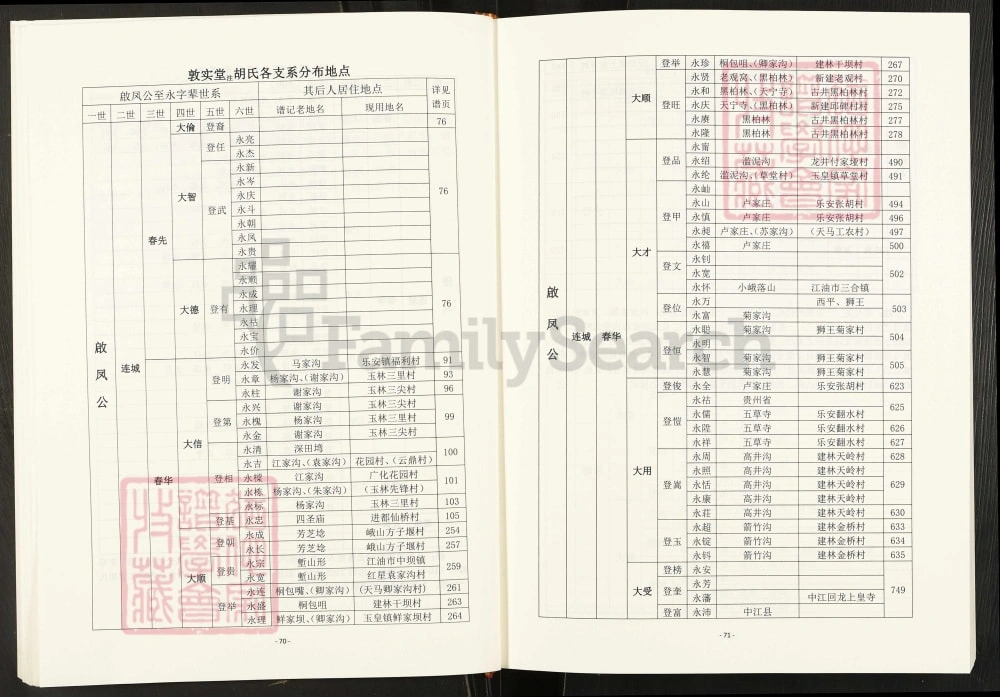 敦实堂 胡氏各支系分布地点
啟凤公至永字辈世系 其后人居住地点 详见谱页
一世 二世 三世 四世 五世 六世 谱记老地名 现用地名
啟凤公 连城 春先 大倫 登裔 76
大智 登任 永亮 76
永杰
登武 永新
永岑
永庆
永斗
永朝
永凤
永贵
大德 登有 永耀 76
永顺
永成
永理
永祜
永宝
永价
春华 大信 登明 永发 马家沟 乐安镇福利村 91
永章 杨家沟、(谢家沟) 玉林三里村 93
永柱 谢家沟 玉林三尖村 96
登第 永兴 谢家沟 玉林三尖村 99
永槐 杨家沟 玉林三里村
永金 谢家沟 玉林三尖村
登相 永清 深田塆 100
永吉 江家沟、(袁家沟) 花园村、(云鼎村)
永樑 江家沟 广化花园村 101
永栋 杨家沟、(朱家沟) (玉林先锋村)
永标 杨家沟 玉林三里村 103
登基 永忠 四圣庙 进都仙桥村 105
大顺 登朝 永成 芳芝埝 峨山方子堰村 254
永长 芳芝埝 峨山方子堰村 257
登贵 永宗 蹔山形 江油市中坝镇 259
永宽 蹔山形 红星袁家沟村
登举 永连 桐包嘴、(卿家沟) (天马卿家沟村) 261
永盛 桐包咀 建林干坝村 263
永理 鲜家坝、(卿家沟) 玉皇镇鲜家坝村 264
- 70 -
啟凤公 连城 春华 大顺 登举 永珍 桐包咀、(卿家沟) 建林干坝村 267
登旺 永贤 老观窝、(黑柏林) 新建老观村 270
永和 黑柏林、(天宁寺) 古井黑柏林村 272
永庆 天宁寺、(黑柏林) 新建邱碑村村 275
永赓 黑柏林 古井黑柏林村 277
永隆 黑柏林 古井黑柏林村 278
大才 登品 永甯
永绍 滥泥沟 龙井付家垭村 490
永纶 滥泥沟、(草堂村) 玉皇镇草堂村 491
登甲 永屾
永山 卢家庄 乐安张胡村 494
永慎 卢家庄 乐安张胡村 496
永昶 卢家庄、(苏家沟) (天马工农村) 497
永禧 卢家庄 500
登文 永钊 502
永宽
永怀 小峨落山 江油市三合镇
登位 永万 西平、狮王 503
永富 菊家沟
登恒 永聪 菊家沟 狮王菊家村 504
永明
永智 菊家沟 狮王菊家村 505
永慧 菊家沟 狮王菊家村
大用 登俊 永全 卢家庄 乐安张胡村 623
登愷 永祜 贵州省 625
永儒 五草寺 乐安翻水村
永陞 五草寺 乐安翻水村 626
永祥 五草寺 乐安翻水村 627
登嵩 永周 高井沟 建林天岭村 628
永照 高井沟 建林天岭村 629
永恬 高井沟 建林天岭村
永康 高井沟 建林天岭村
永莊 高井沟 建林天岭村 630
登玉 永超 箭竹沟 建林金桥村 633
永锭 箭竹沟 建林金桥村 634
永钭 箭竹沟 建林金桥村 635
大受 登榜 永安 749
登奎 永芳
永藩 中江回龙上皇寺
登富 永沛 中江县
- 71 -
FamilySearch